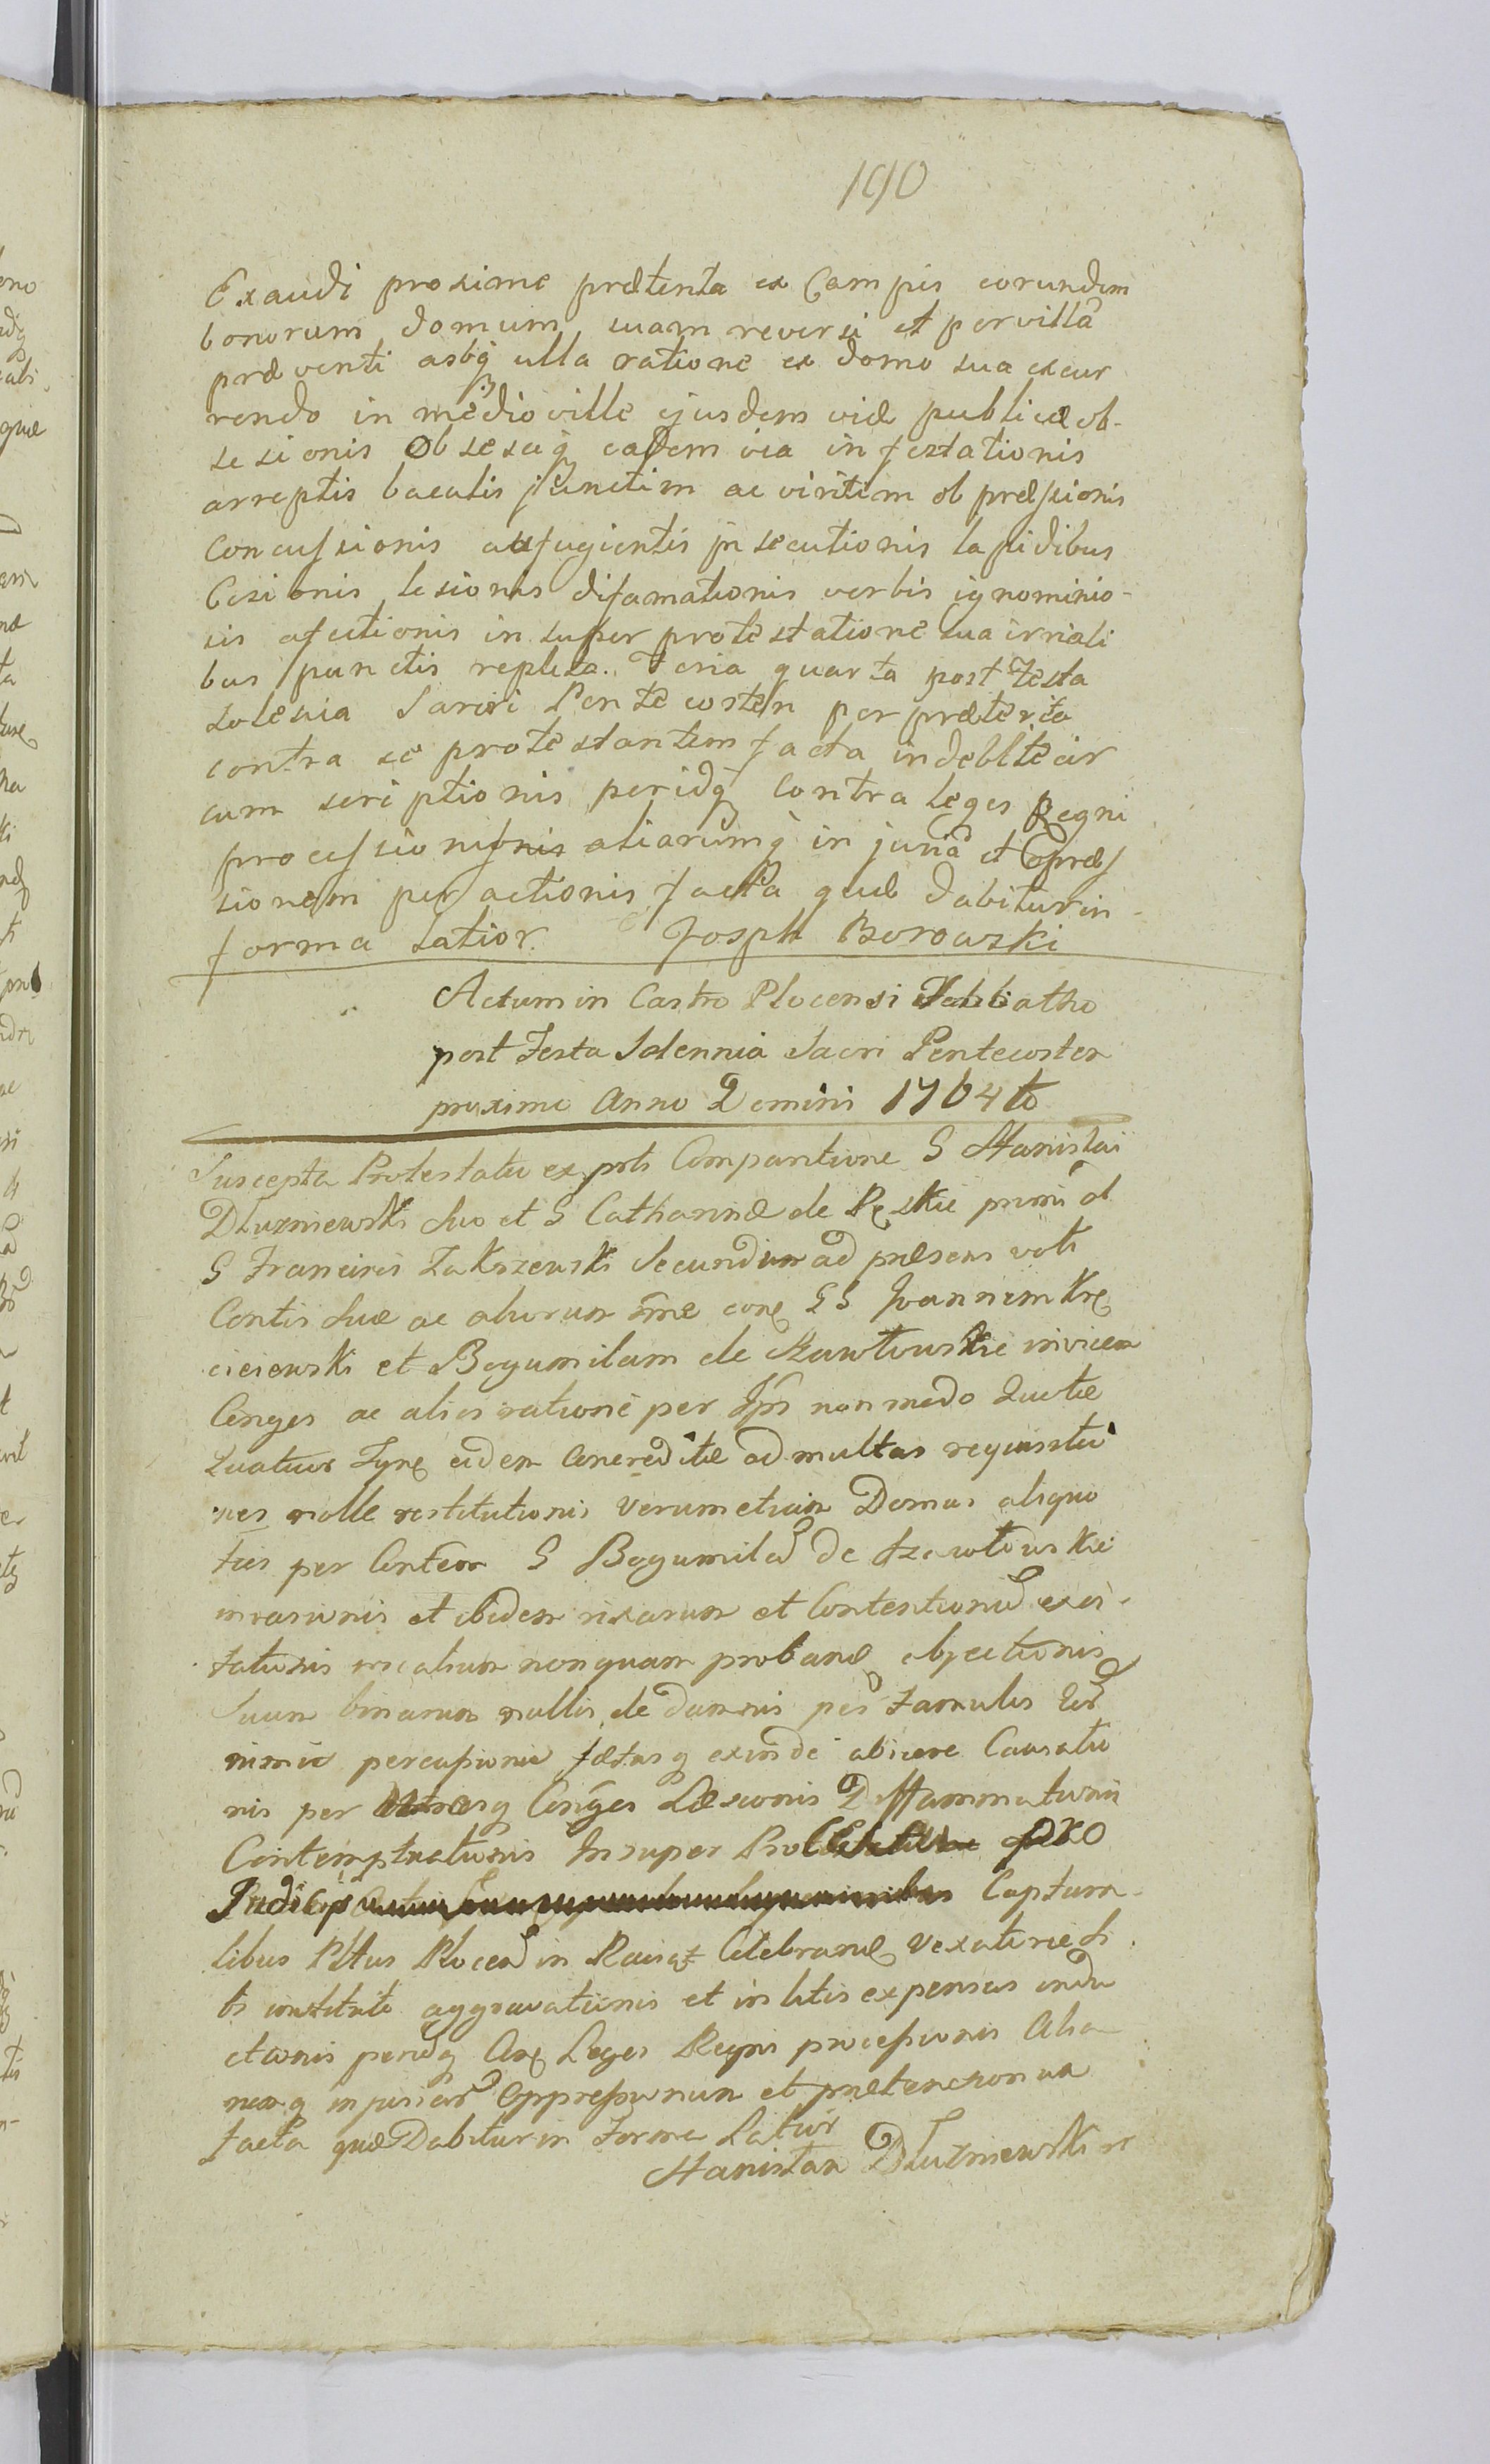 190
Exaudi proxime prætenta ex Campis eorundem
bonorum domum suam reversi et per villã
præventi absq ulla ratione ex domo sua excur
rendo in medio ville ejusdem viæ publicæ ob-
sesionis Obsesaq eadem via infestationis
arreptis baculis junctim ac viritim ob præssionis
Concussionis aufugientis insecutionis lapidibus
Cesionis lesionis difamationis verbis ignominio-
sis afectionis in super protestatione sua
bus punctis repleta. Feria quarta post Festa
Solenia Sacri Pentecosten per præterita
contra se protestantem facta indebite cir
cum scriptionis peridq Contra leges Regni
processionis aliarumq in juriã et Opræs
sionem peractionis facta quæ dabitur in
forma latior. Josph Borowski
Actum in Castro Plocensi Sabbatho
post Festa Solennia Sacri Pentecostes
proximo Anno Domini 1764to
Suscepta Protestatio ex prti Comparitione G Stanislai
Dluzniewski suo et G Catharinæ de primi ol
G Francisci Zakrzewski Secundi vero ad præsens voti
Contis suæ ac aliorum nomine cone GG Joannem Krę
ciciewski et Bogumilam de invicem
Conges ac alios ratione per Ipsos non modo
Quatuor eidem Concreditæ ad multas requisitio
nes nolle restitutionis Verum etiam Domus aliquo
ties per Contem G Bogumilã de
invasionis et ibidem rixarum et Contentionũ exci-
tationis nonquam probanæ objectionis
Suum binarum nullis de damnis per Famulos
nimio percussionis exinde Causatio
nis per Utrosq Conges Læsionis Diffammationis
Contemptuationis Insuper pro
Judicijs Captura-
libus Pltus Plocen in Raciąż Celebranæ Vexationis
instituti aggravationis et in litis expensas indu
ctionis peridq Cone Leges Regni processionis Alia
rumq injuriarũ Oppressionum et prætensionum
facta quæ Dabitur in Forma Latior
Stanislau Dluzniewski